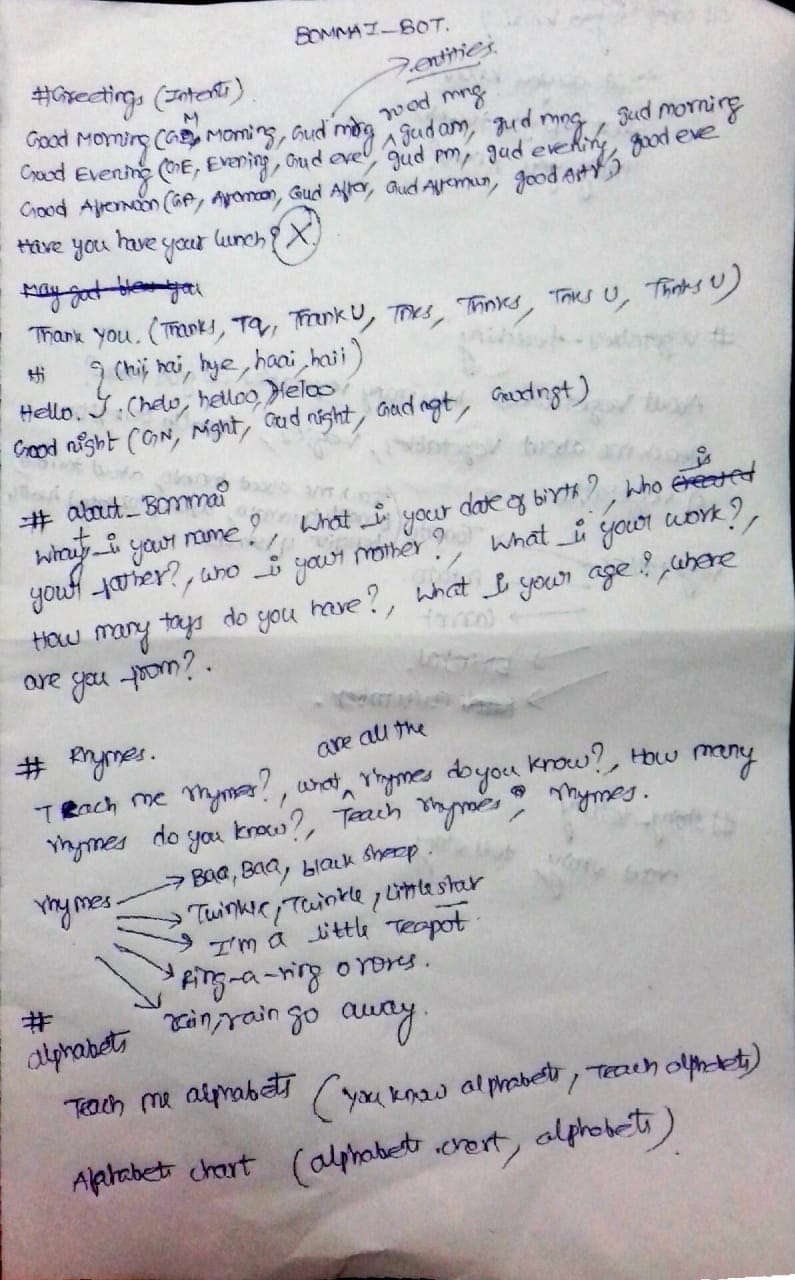 BOMMAI_BOT.
entities.
#Greetings (Intents)
Good Morning (GM, Morning, Gud mrng good mng gud am, gud mng, gud morning
Good Evening (GE, Evening, Gud eve, gud pm, gud evening, good eve
Good Afternoon (GA, Afternoon, Gud After, Gud Afternun, good Aftr)
Have you have your lunch? X
May god bless you
Thank you. (Thanks, TQ, Thank U, Tnks, Thnks, Tnks U, Thnks U)
Hi } (hii, hai, hye, haai, haii)
Hello. }. (helo, helloo, Heloo
Good night (GN, Night, Gud night, Gud ngt, Goodngt)
# about_Bommai
What is your name?, What is your date of birth?, Who created is
your father?, who is your mother?, What is your work?,
How many toys do you have?, What is your age?, where
are you from?.
# Rhymes.
are all the
Teach me rhymes?, what rhymes do you know?, How many
rhymes do you know?, Teach rhymes, rhymes.
rhymes
Baa, Baa, black sheep.
Twinkle, Twinkle, Little star
I'm a little Teapot.
Ring-a-ring o roses.
rain, rain go away.
#
alphabets
Teach me alphabets (you know alphabets, Teach alphabets)
Alphabet chart (alphabets chart, alphabets).